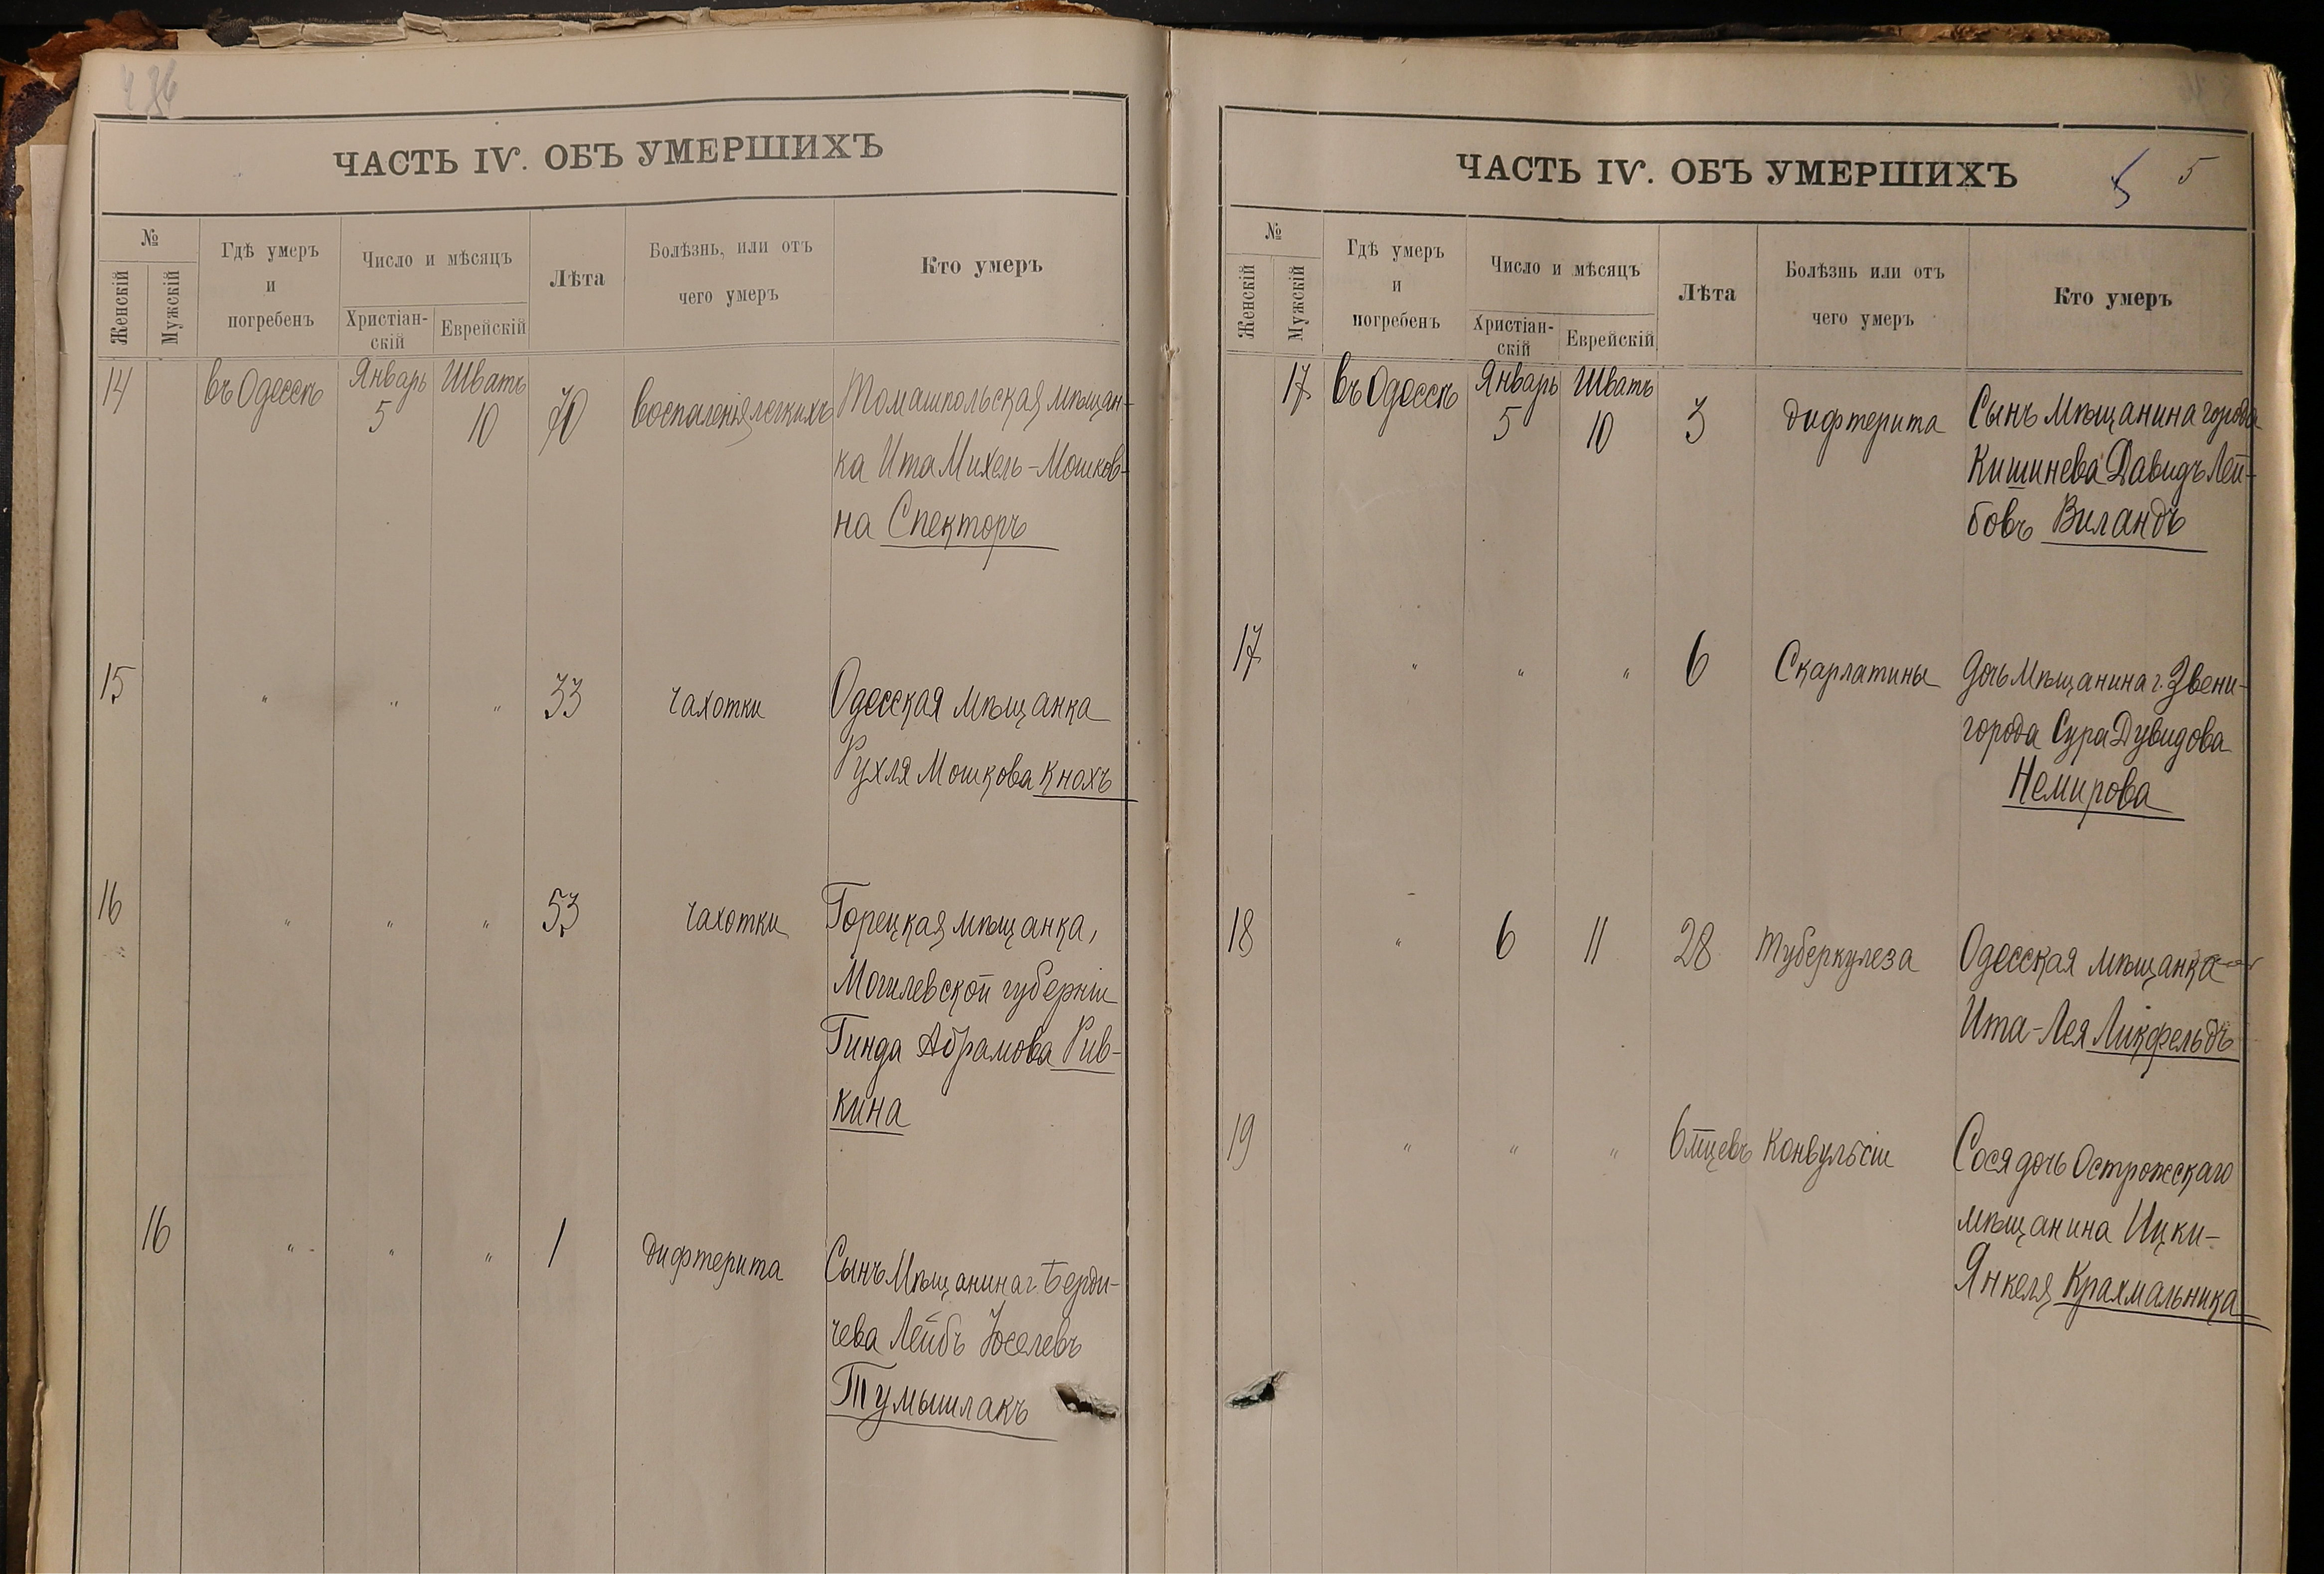 436
ЧАСТЬ IV. ОБЪ УМЕРШИХЪ
№
Женскій
Мужскій
Гдѣ умеръ
и
погребенъ
Число и мѣсяцъ
Христіан-
скій
Еврейскій
Лѣта
Болѣзнь, или отъ
чего умеръ
Кто умеръ
14 въ Одессѣ Январь 5 Шватъ 10 70 воспаленія легкихъ Томашпольская мѣщан-
ка Ита Михель-Мошков-
на Спекторъ
15 " " " 33 чахотки Одесская мѣщанка
Рухля Мошкова Кнохъ
16 " " " 53 чахотки Горецкая мѣщанка,
Могилевской губерніи
Гинда Абрамова Рив-
кина
16 " " " 1 дифтерита Сынъ Мѣщанина г. Берди-
чева Лейбъ Іоселевъ
Тумышлакъ
ЧАСТЬ IV. ОБЪ УМЕРШИХЪ
5 5
№
Женскій
Мужскій
Гдѣ умеръ
и
погребенъ
Число и мѣсяцъ
Христіан-
скій
Еврейскій
Лѣта
Болѣзнь или отъ
чего умеръ
Кто умеръ
17 въ Одессѣ Январь 5 Шватъ 10 3 дифтерита Сынъ мѣщанина города
Кишинева Давидъ Лей-
бовъ Виландъ
17 " " " 6 Скарлатины дочь Мѣщанина г. Звени-
города Сура Дувидова
Немирова
18 " 6 11 28 Туберкулеза Одесская мѣщанка
Ита-Лея Ликфельдъ
19 " " " 6 мцевъ Конвульсіи Сося дочь Острожскаго
мѣщанина Ицки-
Янкеля Крахмальника